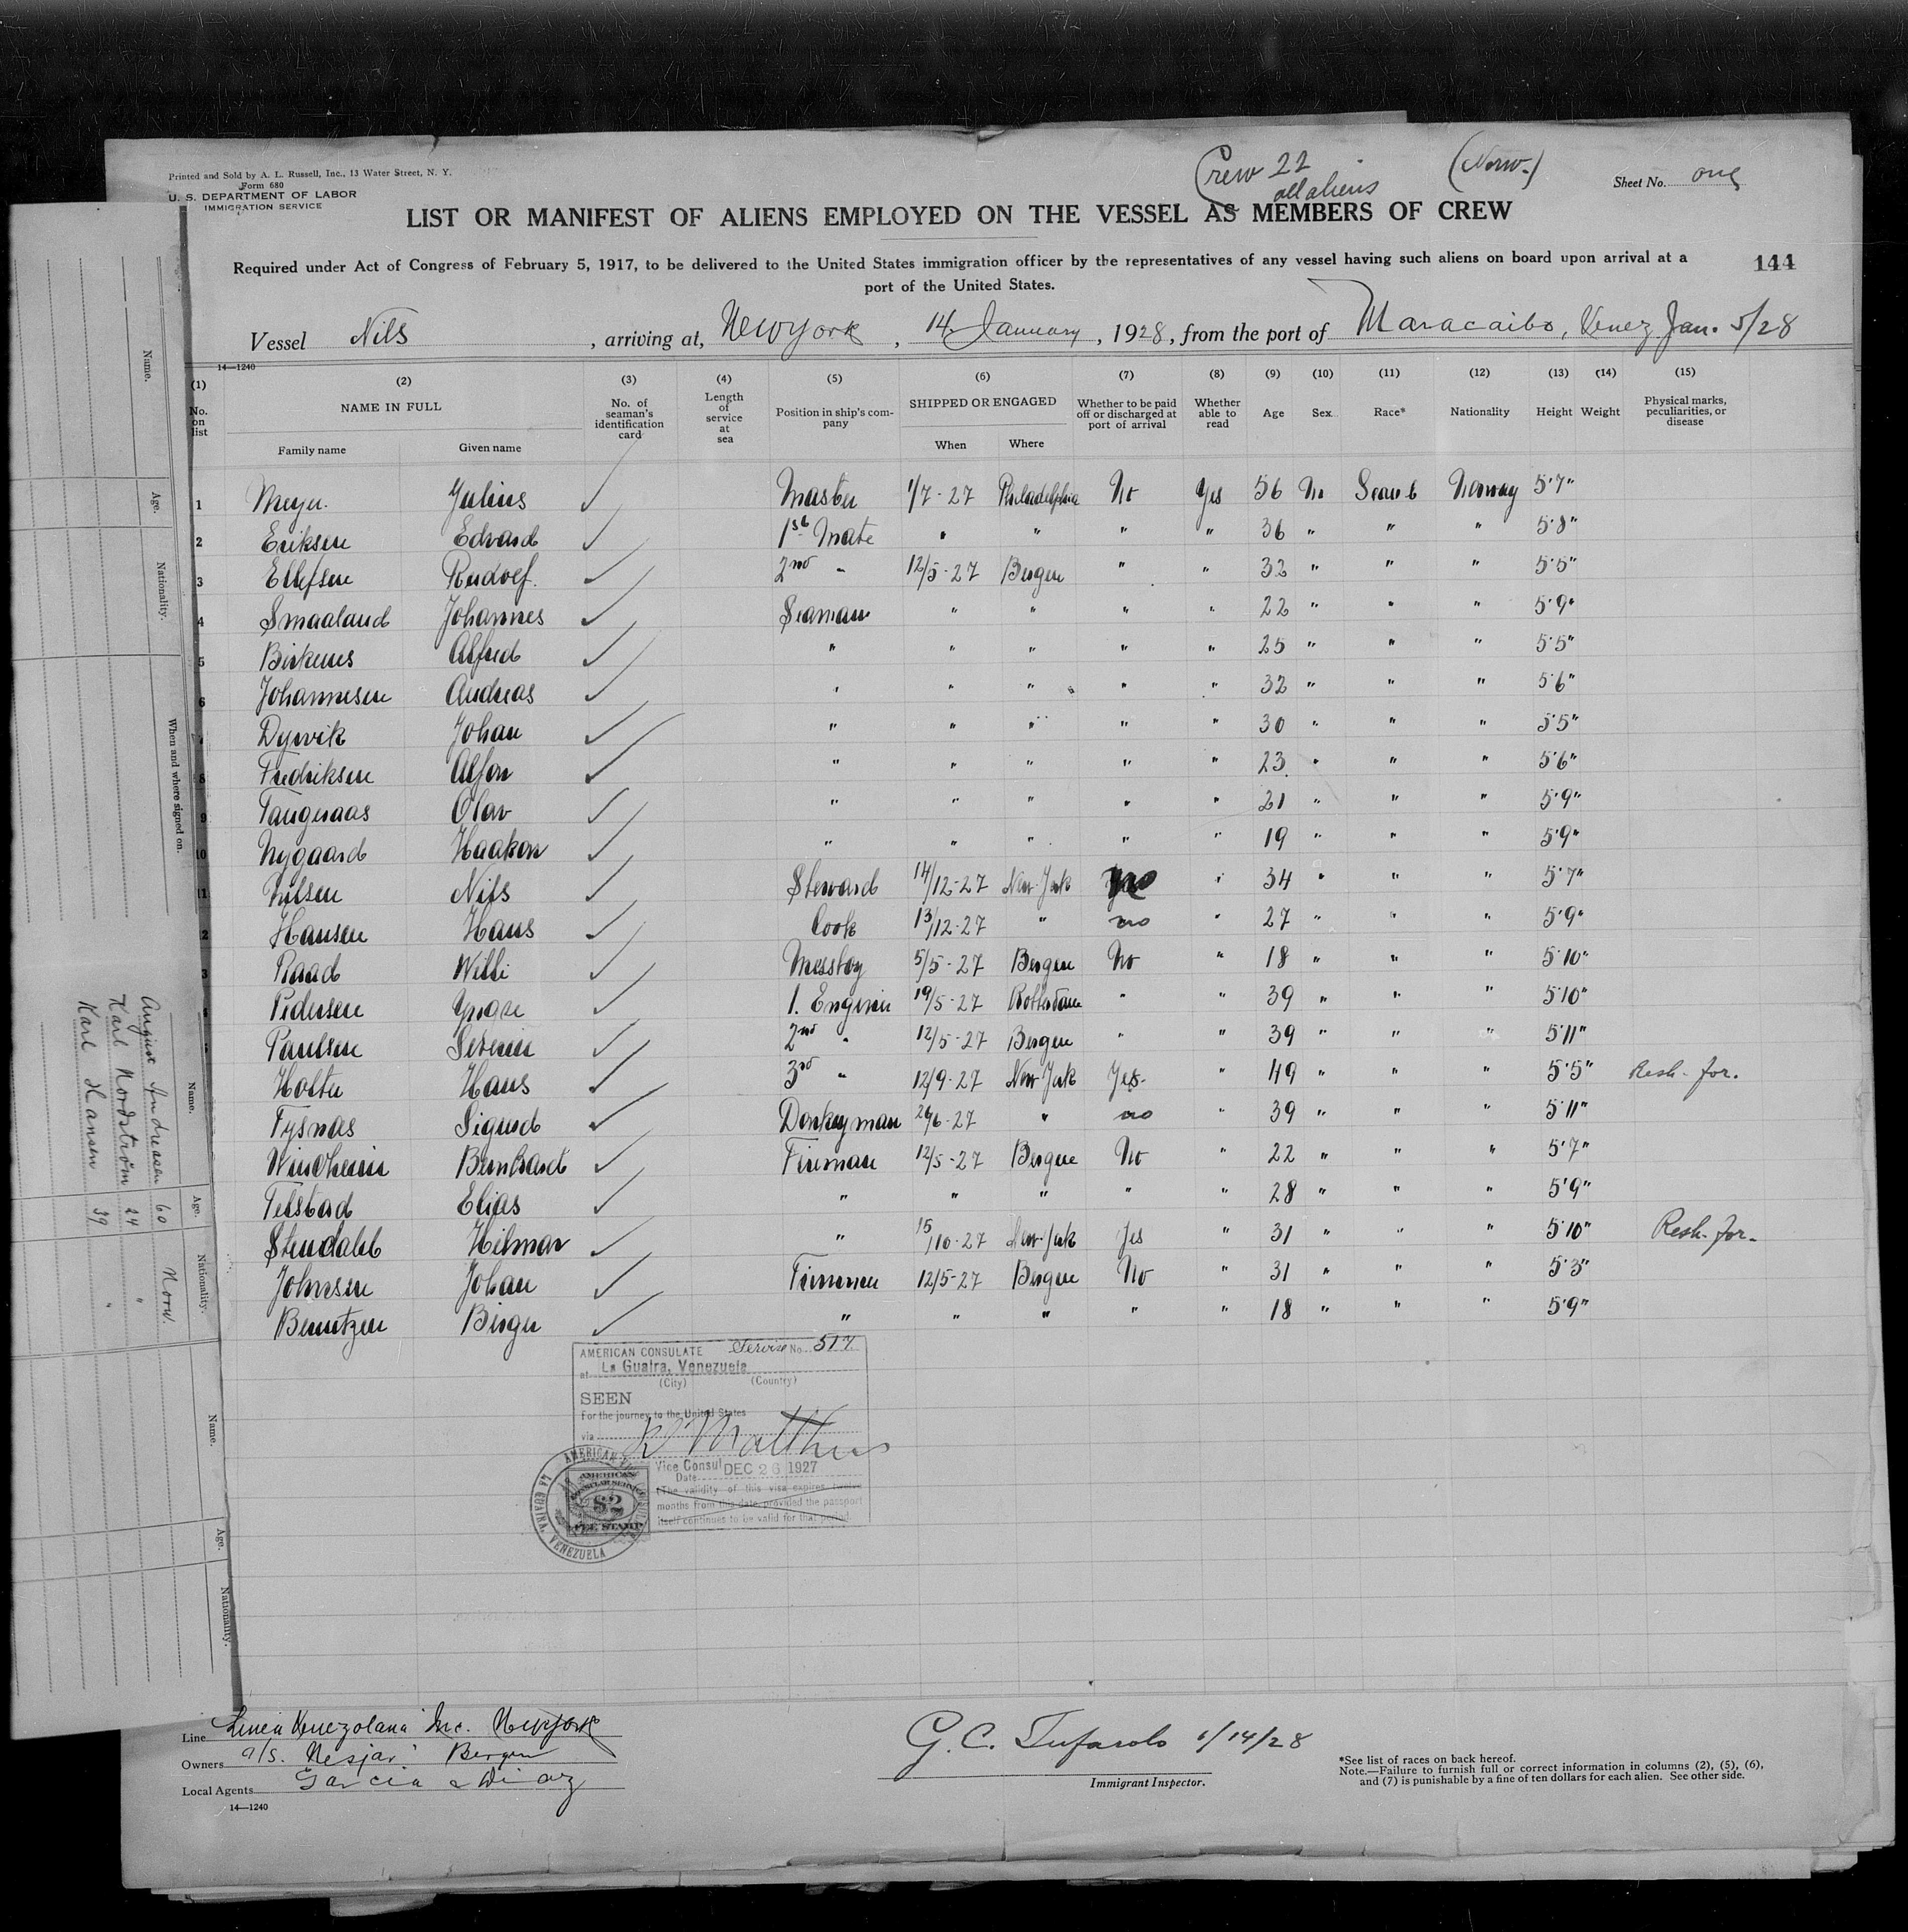 Printed and Sold by A. L. Russell, Inc., 13 Water Street, N. Y.
Form 680
U. S. DEPARTMENT OF LABOR
IMMIGRATION SERVICE
Crew 22
all aliens
(Norw.)
Sheet No. one
LIST OR MANIFEST OF ALIENS EMPLOYED ON THE VESSEL AS MEMBERS OF CREW
Required under Act of Congress of February 5, 1917, to be delivered to the United States immigration officer by the representatives of any vessel having such aliens on board upon arrival at a
port of the United States.
144
Vessel Nils, arriving at, New York, 14 January, 1928, from the port of Maracaibo, Venez Jan. 5/28
14—1240
(1) (2) (3) (4) (5) (6) (7) (8) (9) (10) (11) (12) (13) (14) (15)
No. on list NAME IN FULL No. of seaman's identification card Length of service at sea Position in ship's company SHIPPED OR ENGAGED Whether to be paid off or discharged at port of arrival Whether able to read Age Sex Race* Nationality Height Weight Physical marks, peculiarities, or disease
Family name Given name When Where
1 Meyer Julius Master 1/7-27 Philadelphia No Yes 56 M Scand Norway 5'7"
2 Eriksen Edvard 1st Mate " " " " 36 " " " 5'8"
3 Ellefsen Rudolf. 2nd " 12/5-27 Bergen " " 32 " " " 5'5"
4 Smaaland Johannes Seaman " " " " 22 " " " 5'9"
5 Birkenes Alfred " " " " " 25 " " " 5'5"
6 Johannesen Andreas " " " " " 32 " " " 5'6"
7 Dyrvik Johan " " " " " 30 " " " 5'5"
8 Fredriksen Alfon " " " " " 23 " " " 5'6"
9 Tangeraas Olav " " " " " 21 " " " 5'9"
10 Nygaard Haakon " " " " " 19 " " " 5'9"
11 Nilsen Nils Steward 14/12-27 New-York " 34 " " " 5'7"
2 Hansen Hans Cook 13/12-27 " no " 27 " " " 5'9"
3 Raad Willi Messboy 5/5-27 Bergen No " 18 " " " 5'10"
Pedersen 1. Engineer 19/5-27 Rotterdam " " 39 " " " 5'10"
Paulsen Severin 2nd " 12/5-27 Bergen " " 39 " " " 5'11"
Holter Hans 3rd " 12/9-27 New-York Yes. " 49 " " " 5'5" Resh. for.
Tysnes Sigurd Donkeyman 26/6-27 " no " 39 " " " 5'11"
Windheim Bernhard Fireman 12/5-27 Bergen No " 22 " " " 5'7"
Telstad Elias " " " " " 28 " " " 5'9"
Stendahl Hilmar " 15/10-27 New-York Yes " 31 " " " 5'10" Resh. for.
Johnsen Johan Firemen 12/5-27 Bergen No " 31 " " " 5'3"
Berntzen Birger " " " " " 18 " " " 5'9"
AMERICAN CONSULATE Service No. 517
at La Guaira, Venezuela
(City) (Country)
SEEN
For the journey to the United States
via
Vice Consul
Date DEC 26 1927
(The validity of this visa expires twelve
months from this date, provided the passport
itself continues to be valid for that period.
AMERICAN
CONSULAR SERVICE
$2
FEE STAMP
LA GUAIRA, VENEZUELA
Line Linea Venezolana Inc. New York
Owners a/s. Nesjar Bergen
Local Agents Garcia & Diaz
14—1240
G. C. Tufarolo 1/14/28
Immigrant Inspector.
*See list of races on back hereof.
Note.—Failure to furnish full or correct information in columns (2), (5), (6),
and (7) is punishable by a fine of ten dollars for each alien. See other side.
Name. Age. Nationality. When and where signed on.
Name. Age. Nationality.
August Andreasen 60 Norw
Karl Nordström 24 "
Karl Hansen 39 "
Name. Age. Nationality.